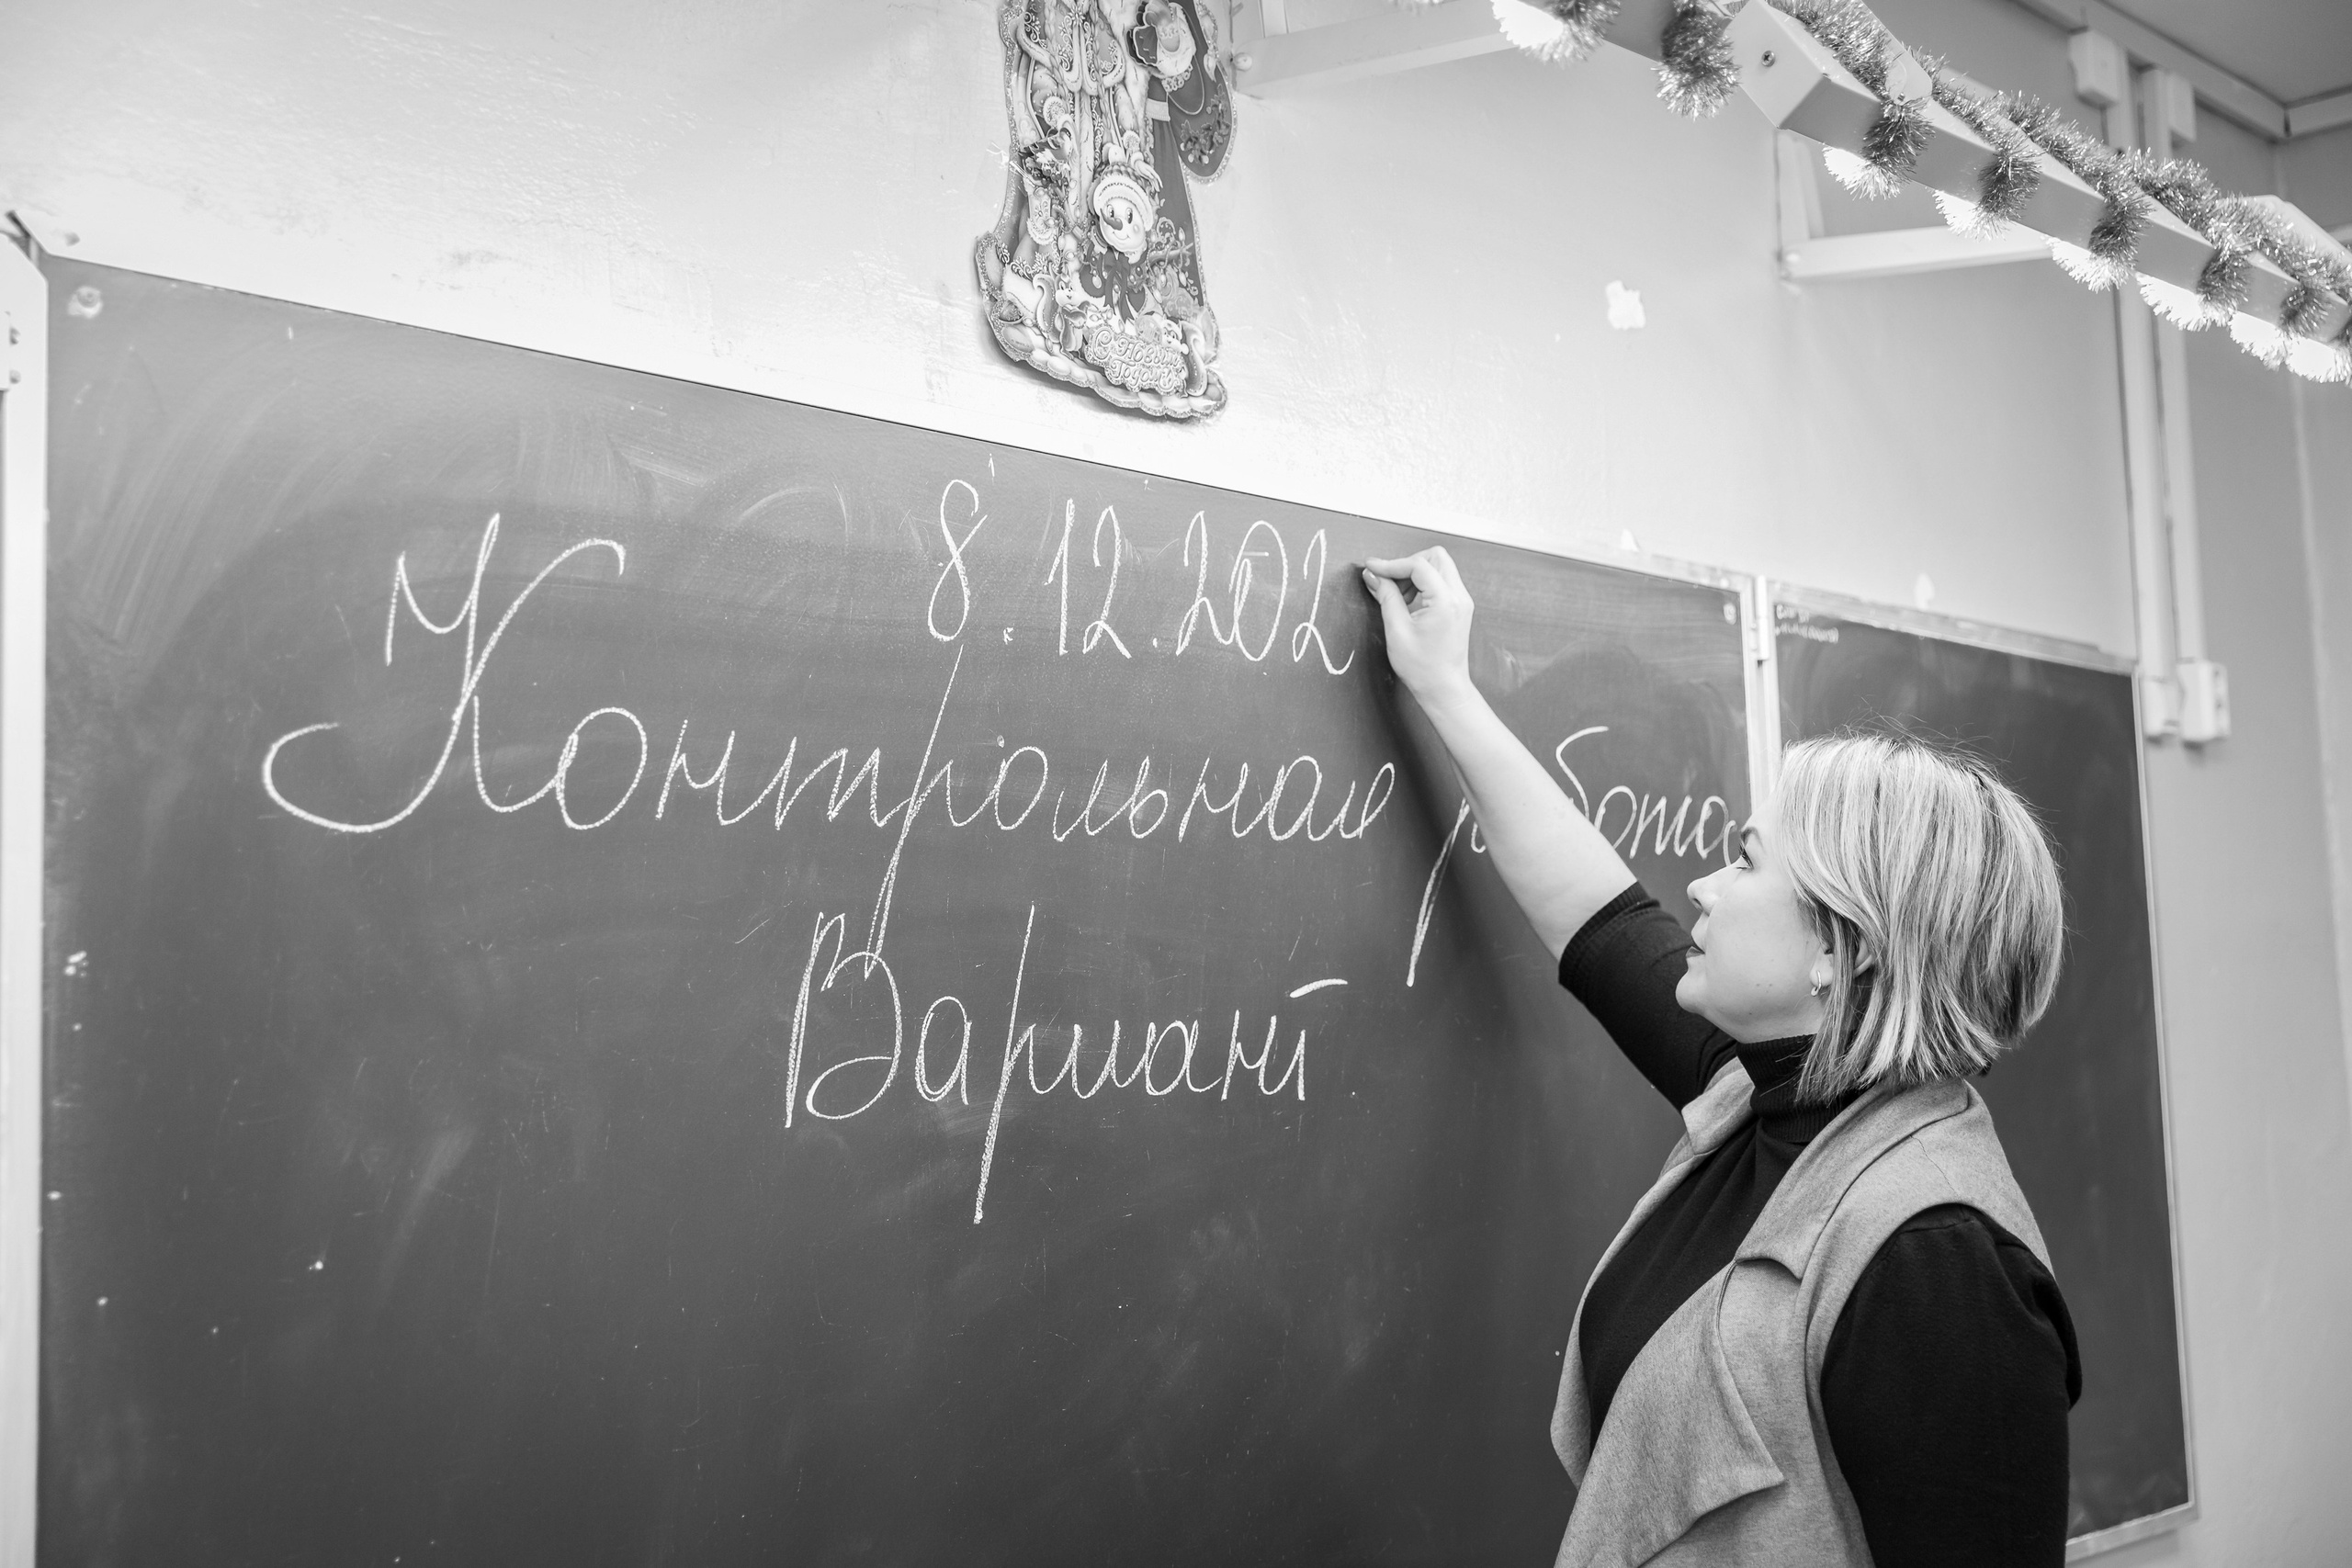 С Новым
Годом!
8.12.202
Контрольная работа
Вариант